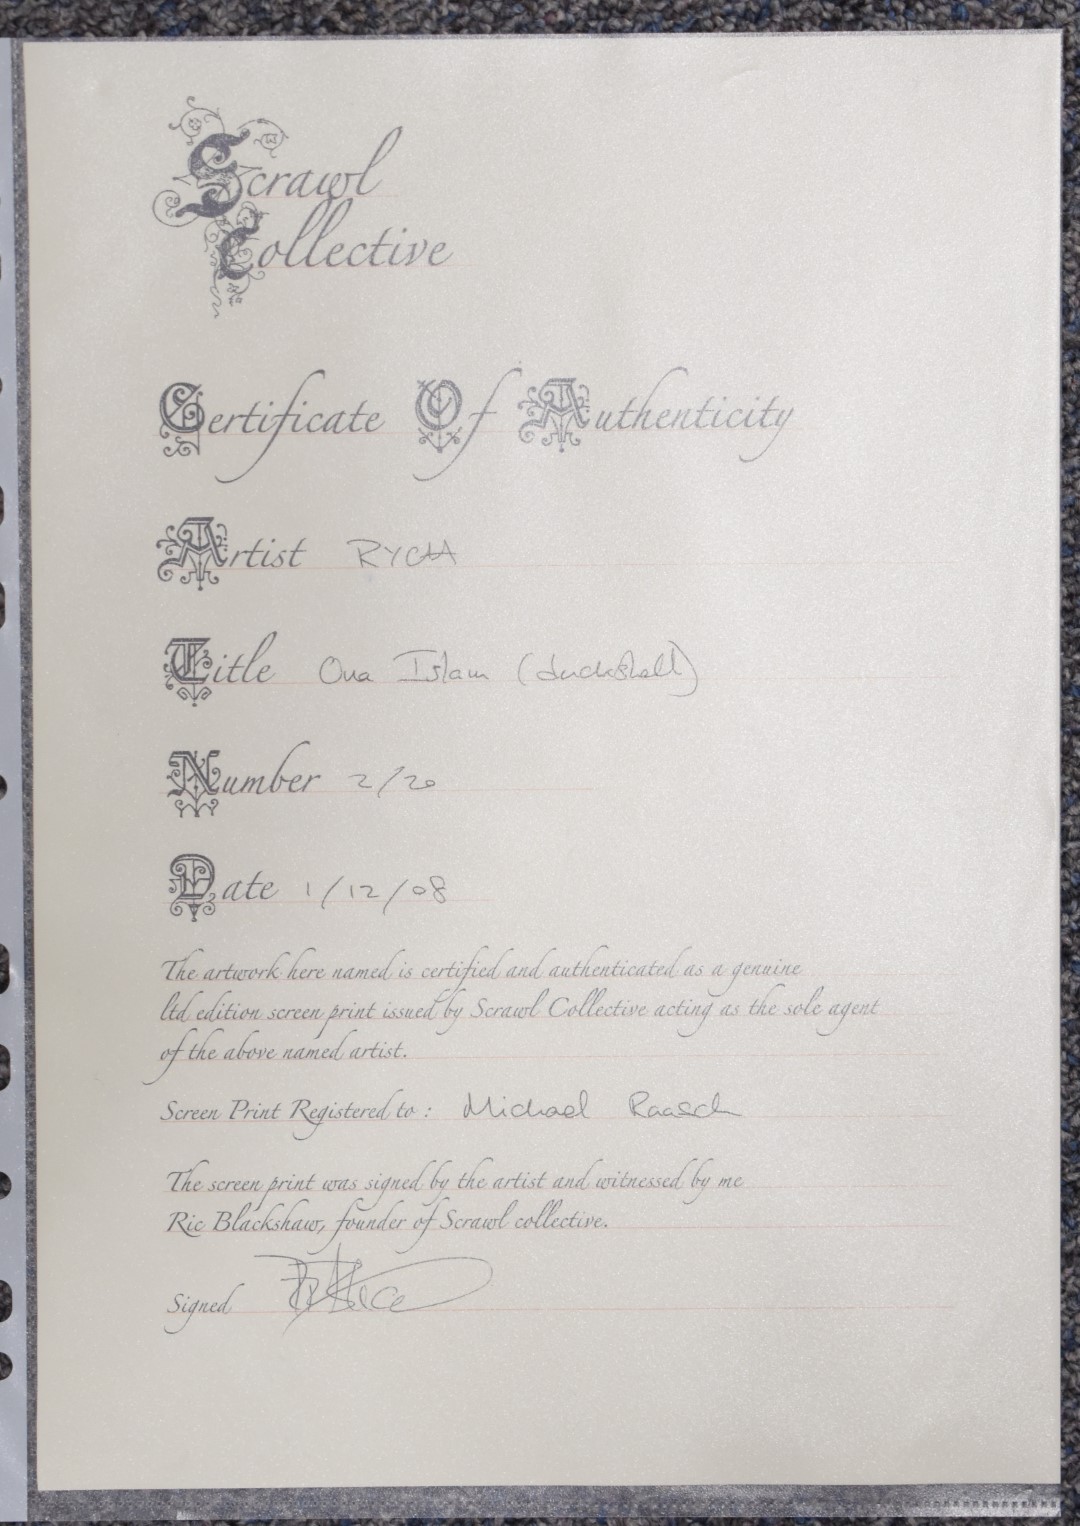 Scrawl
Collective
Certificate Of Authenticity
Artist RYCA
Title Ova Islam (duckshell)
Number 2/20
Date 1/12/08
The artwork here named is certified and authenticated as a genuine
ltd edition screen print issued by Scrawl Collective acting as the sole agent
of the above named artist.
Screen Print Registered to : Michael Raasch
The screen print was signed by the artist and witnessed by me
Ric Blackshaw, founder of Scrawl collective.
Signed